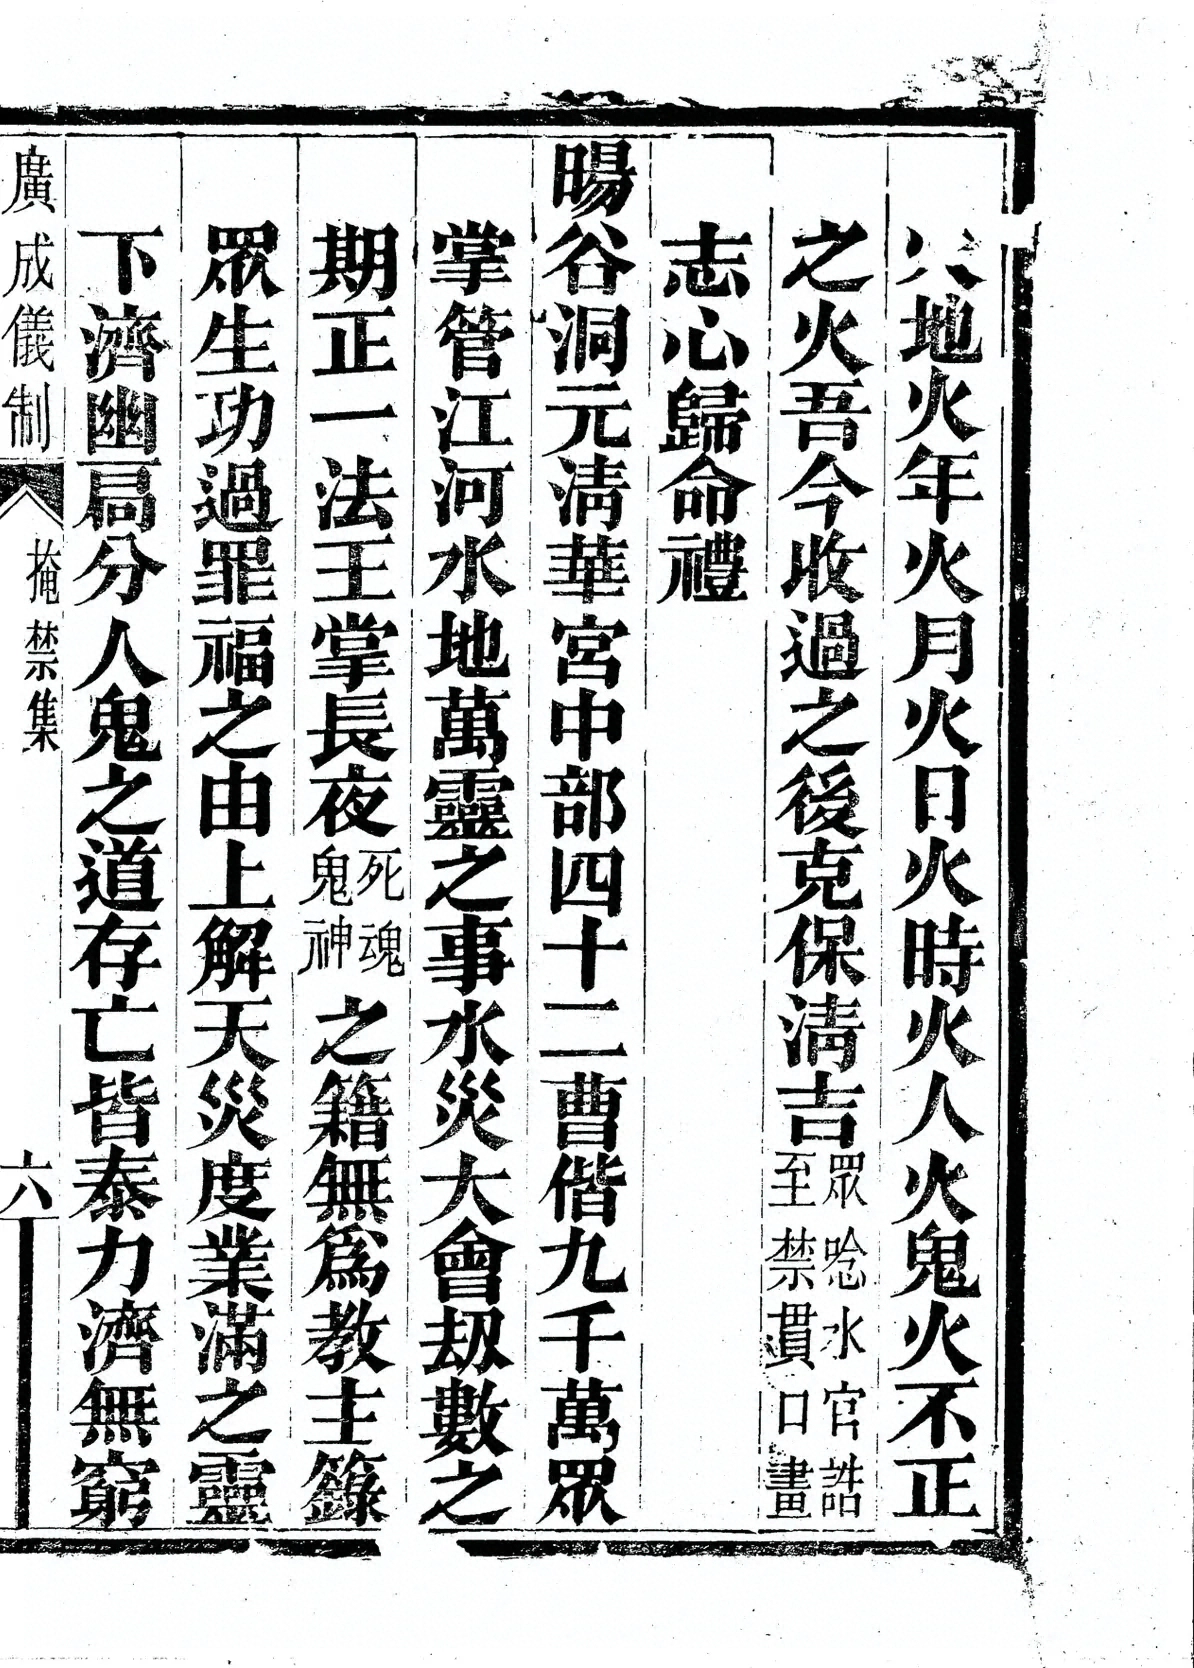 火地火年火月火日火時火人火鬼火不正
之火吾今收過之後克保淸吉眾唸水官誥至禁貫口畫
志心歸命禮
暘谷洞元淸華宮中部四十二曹偕九千萬眾
掌管江河水地萬靈之事水災大會刼數之
期正一法王掌長夜死魂鬼神之籍無爲教主錄
眾生功過罪福之由上解天災度業滿之靈
下濟幽局分人鬼之道存亡皆泰力濟無窮
廣成儀制 掩禁集 六